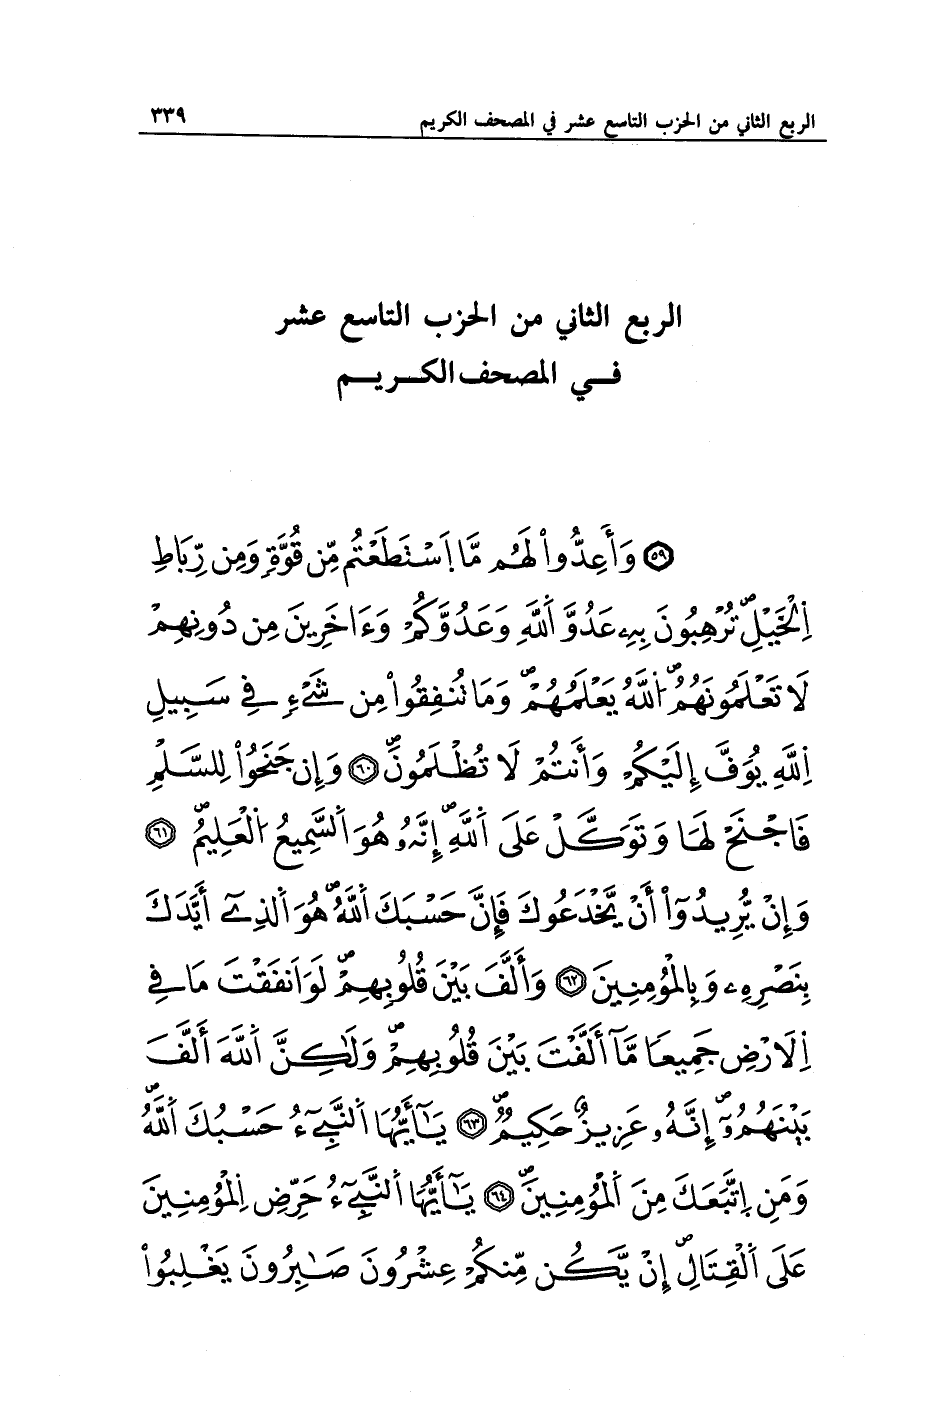 الربع الثاني من الحزب التاسع عشر في المصحف الكريم ٣٣٩
الربع الثاني من الحزب التاسع عشر
في المصحف الكريم
۝٥٩ وَأَعِدُّواْ لَهُم مَّا اَسْتَطَعْتُم مِّن قُوَّةٍ وَمِن رِّبَاطِ
اِلْخَيْلِ تُرْهِبُونَ بِهِۦ عَدُوَّ اَللَّهِ وَعَدُوَّكُمْ وَءَاخَرِينَ مِن دُونِهِمْ
لَا تَعْلَمُونَهُمُ اُللَّهُ يَعْلَمُهُمْ وَمَا تُنفِقُواْ مِن شَےْءٍ فِے سَبِيلِ
اِللَّهِ يُوَفَّ إِلَيْكُمْ وَأَنتُمْ لَا تُظْلَمُونَ ۝٦٠ وَإِن جَنَحُواْ لِلسَّلْمِ
فَاجْنَحْ لَهَا وَتَوَكَّلْ عَلَى اَللَّهِ إِنَّهُۥ هُوَ اَلسَّمِيعُ اُلْعَلِيمُ ۝٦١
وَإِنْ يُّرِيدُوٓاْ أَنْ يَّخْدَعُوكَ فَإِنَّ حَسْبَكَ اَللَّهُ هُوَ اَلذِےٓ أَيَّدَكَ
بِنَصْرِهِۦ وَبِالْمُؤْمِنِينَ ۝٦٢ وَأَلَّفَ بَيْنَ قُلُوبِهِمْ لَوَ اَنفَقْتَ مَا فِے
اِلَارْضِ جَمِيعاً مَّآ أَلَّفْتَ بَيْنَ قُلُوبِهِمْ وَلَٰكِنَّ اَللَّهَ أَلَّفَ
بَيْنَهُمُۥٓ إِنَّهُۥ عَزِيزٌ حَكِيمٌ ۝٦٣ يَٰٓأَيُّهَا اَلنَّبِےٓءُ حَسْبُكَ اَللَّهُ
وَمَنِ اِتَّبَعَكَ مِنَ اَلْمُؤْمِنِينَ ۝٦٤ يَٰٓأَيُّهَا اَلنَّبِےٓءُ حَرِّضِ اِلْمُؤْمِنِينَ
عَلَى اَلْقِتَالِ إِنْ يَّكُن مِّنكُمْ عِشْرُونَ صَٰبِرُونَ يَغْلِبُواْ